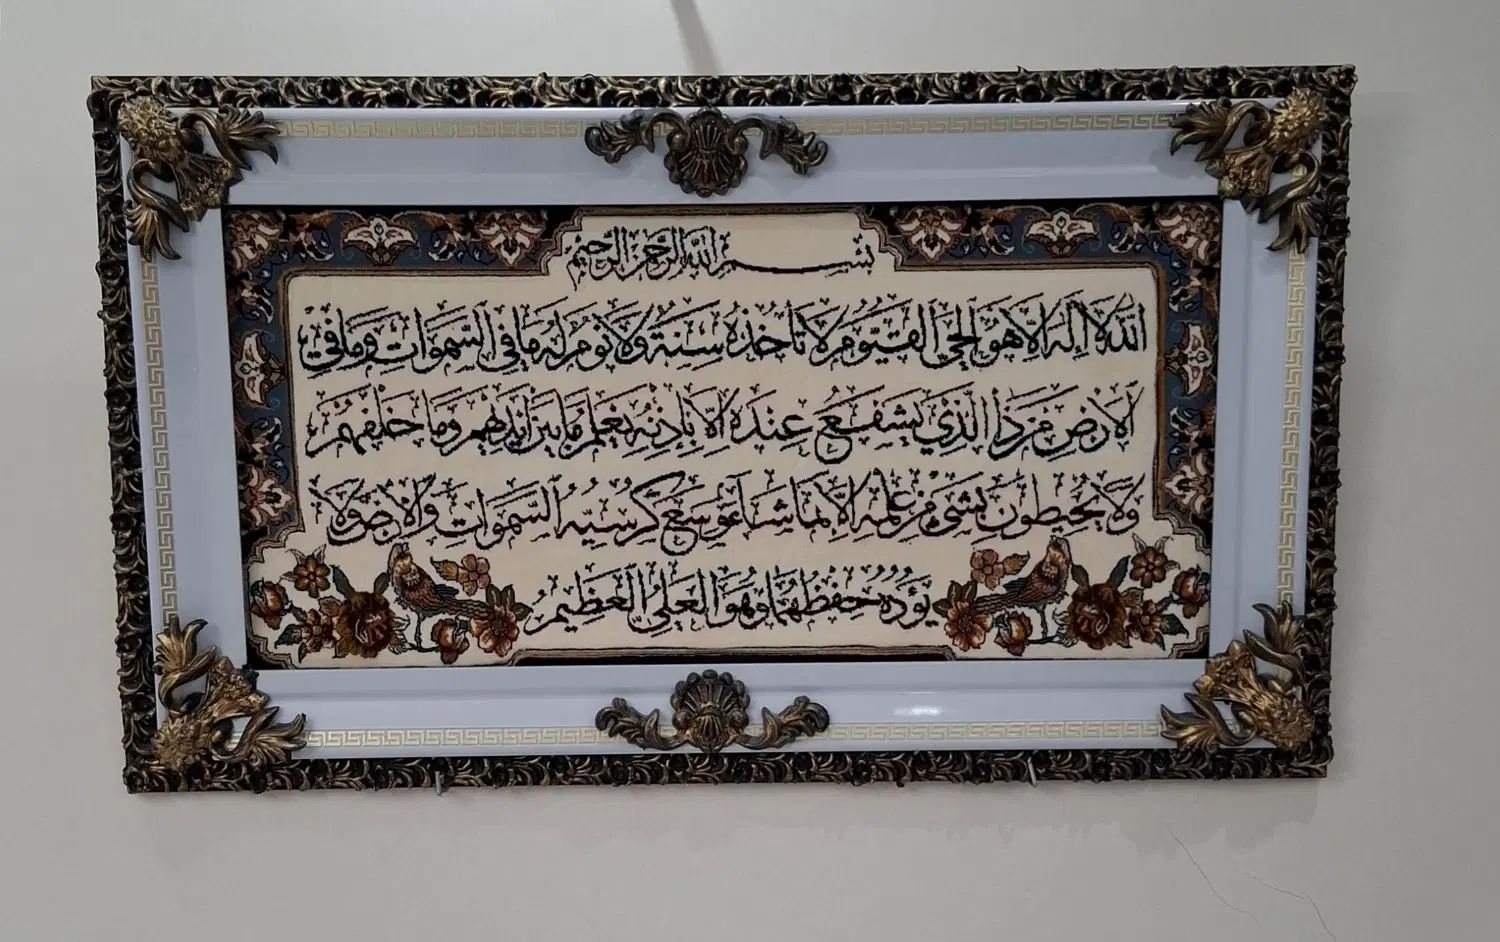 بسم الله الرحمن الرحيم
الله لا اله الا هو الحي القيوم لا تأخذه سنة ولا نوم له ما في السموات وما في
الارض من ذا الذي يشفع عنده الا باذنه يعلم ما بين ايديهم وما خلفهم
ولا يحيطون بشيء من علمه الا بما شاء وسع كرسيه السموات والارض ولا
يؤده حفظهما وهو العلي العظيم